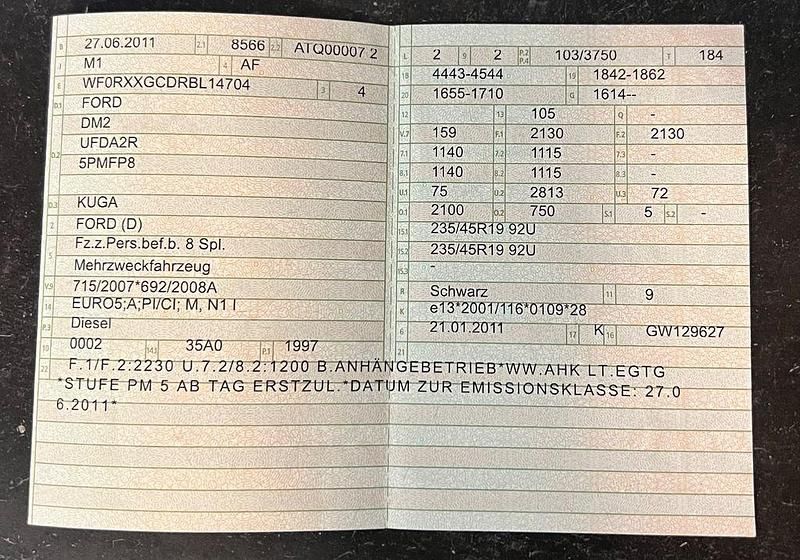 B 27.06.2011 2.1 8566 2.2 ATQ00007 2
J M1 4 AF
E WF0RXXGCDRBL14704 3 4
D.1 FORD
DM2
D.2 UFDA2R
5PMFP8
D.3 KUGA
2 FORD (D)
5 Fz.z.Pers.bef.b. 8 Spl.
Mehrzweckfahrzeug
V.9 715/2007*692/2008A
14 EURO5;A;PI/CI; M, N1 I
P.3 Diesel
10 0002 14.1 35A0 P.1 1997
L 2 9 2 P.2 P.4 103/3750 T 184
18 4443-4544 19 1842-1862
20 1655-1710 G 1614--
12 13 105 Q -
V.7 159 F.1 2130 F.2 2130
7.1 1140 7.2 1115 7.3 -
8.1 1140 8.2 1115 8.3 -
U.1 75 U.2 2813 U.3 72
O.1 2100 O.2 750 S.1 5 S.2 -
15.1 235/45R19 92U
15.2 235/45R19 92U
15.3 -
R Schwarz 11 9
K e13*2001/116*0109*28
6 21.01.2011 17 K 16 GW129627
21
22 F.1/F.2:2230 U.7.2/8.2:1200 B.ANHÄNGEBETRIEB*WW.AHK LT.EGTG
*STUFE PM 5 AB TAG ERSTZUL.*DATUM ZUR EMISSIONSKLASSE: 27.0
6.2011*